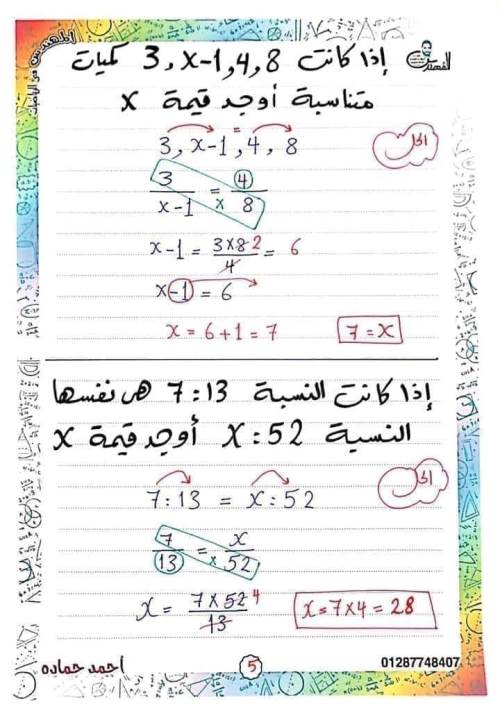 إذا كانت 3 , x-1 , 4 , 8 كميات
متناسبة أوجد قيمة x
الحل
3 , x-1 = , 4 , 8
3/(x-1) = 4/8 ×
x-1 = (3×8)/4 2 = 6
x-1 = 6
x = 6+1 = 7
7 = x
إذا كانت النسبة 7:13 هى نفسها
النسبة x:52 أوجد قيمة x
الحل
7:13 = x:52
7/13 = x/52 ×
x = (7×52)/13 4
x = 7×4 = 28
أحمد حماده
5
01287748407